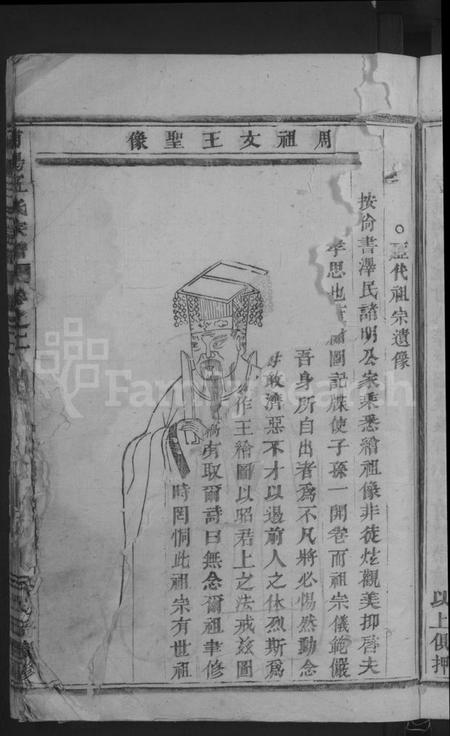 周祖文王聖像
歷代祖宗遺像
按尚書澤民諸明公家乘悉繪祖像非徒炫觀美抑啓夫
孝思也 圖記牒使子孫一開卷而祖宗儀範儼
吾身所自出者為不凡將必惕然動念
敢濟惡不才以遏前人之休烈斯為
作王繪圖以昭君上之法戒茲圖
有取爾詩曰無念爾祖聿修
時罔恫此祖宗有世祖
以上俱押
FamilySearch